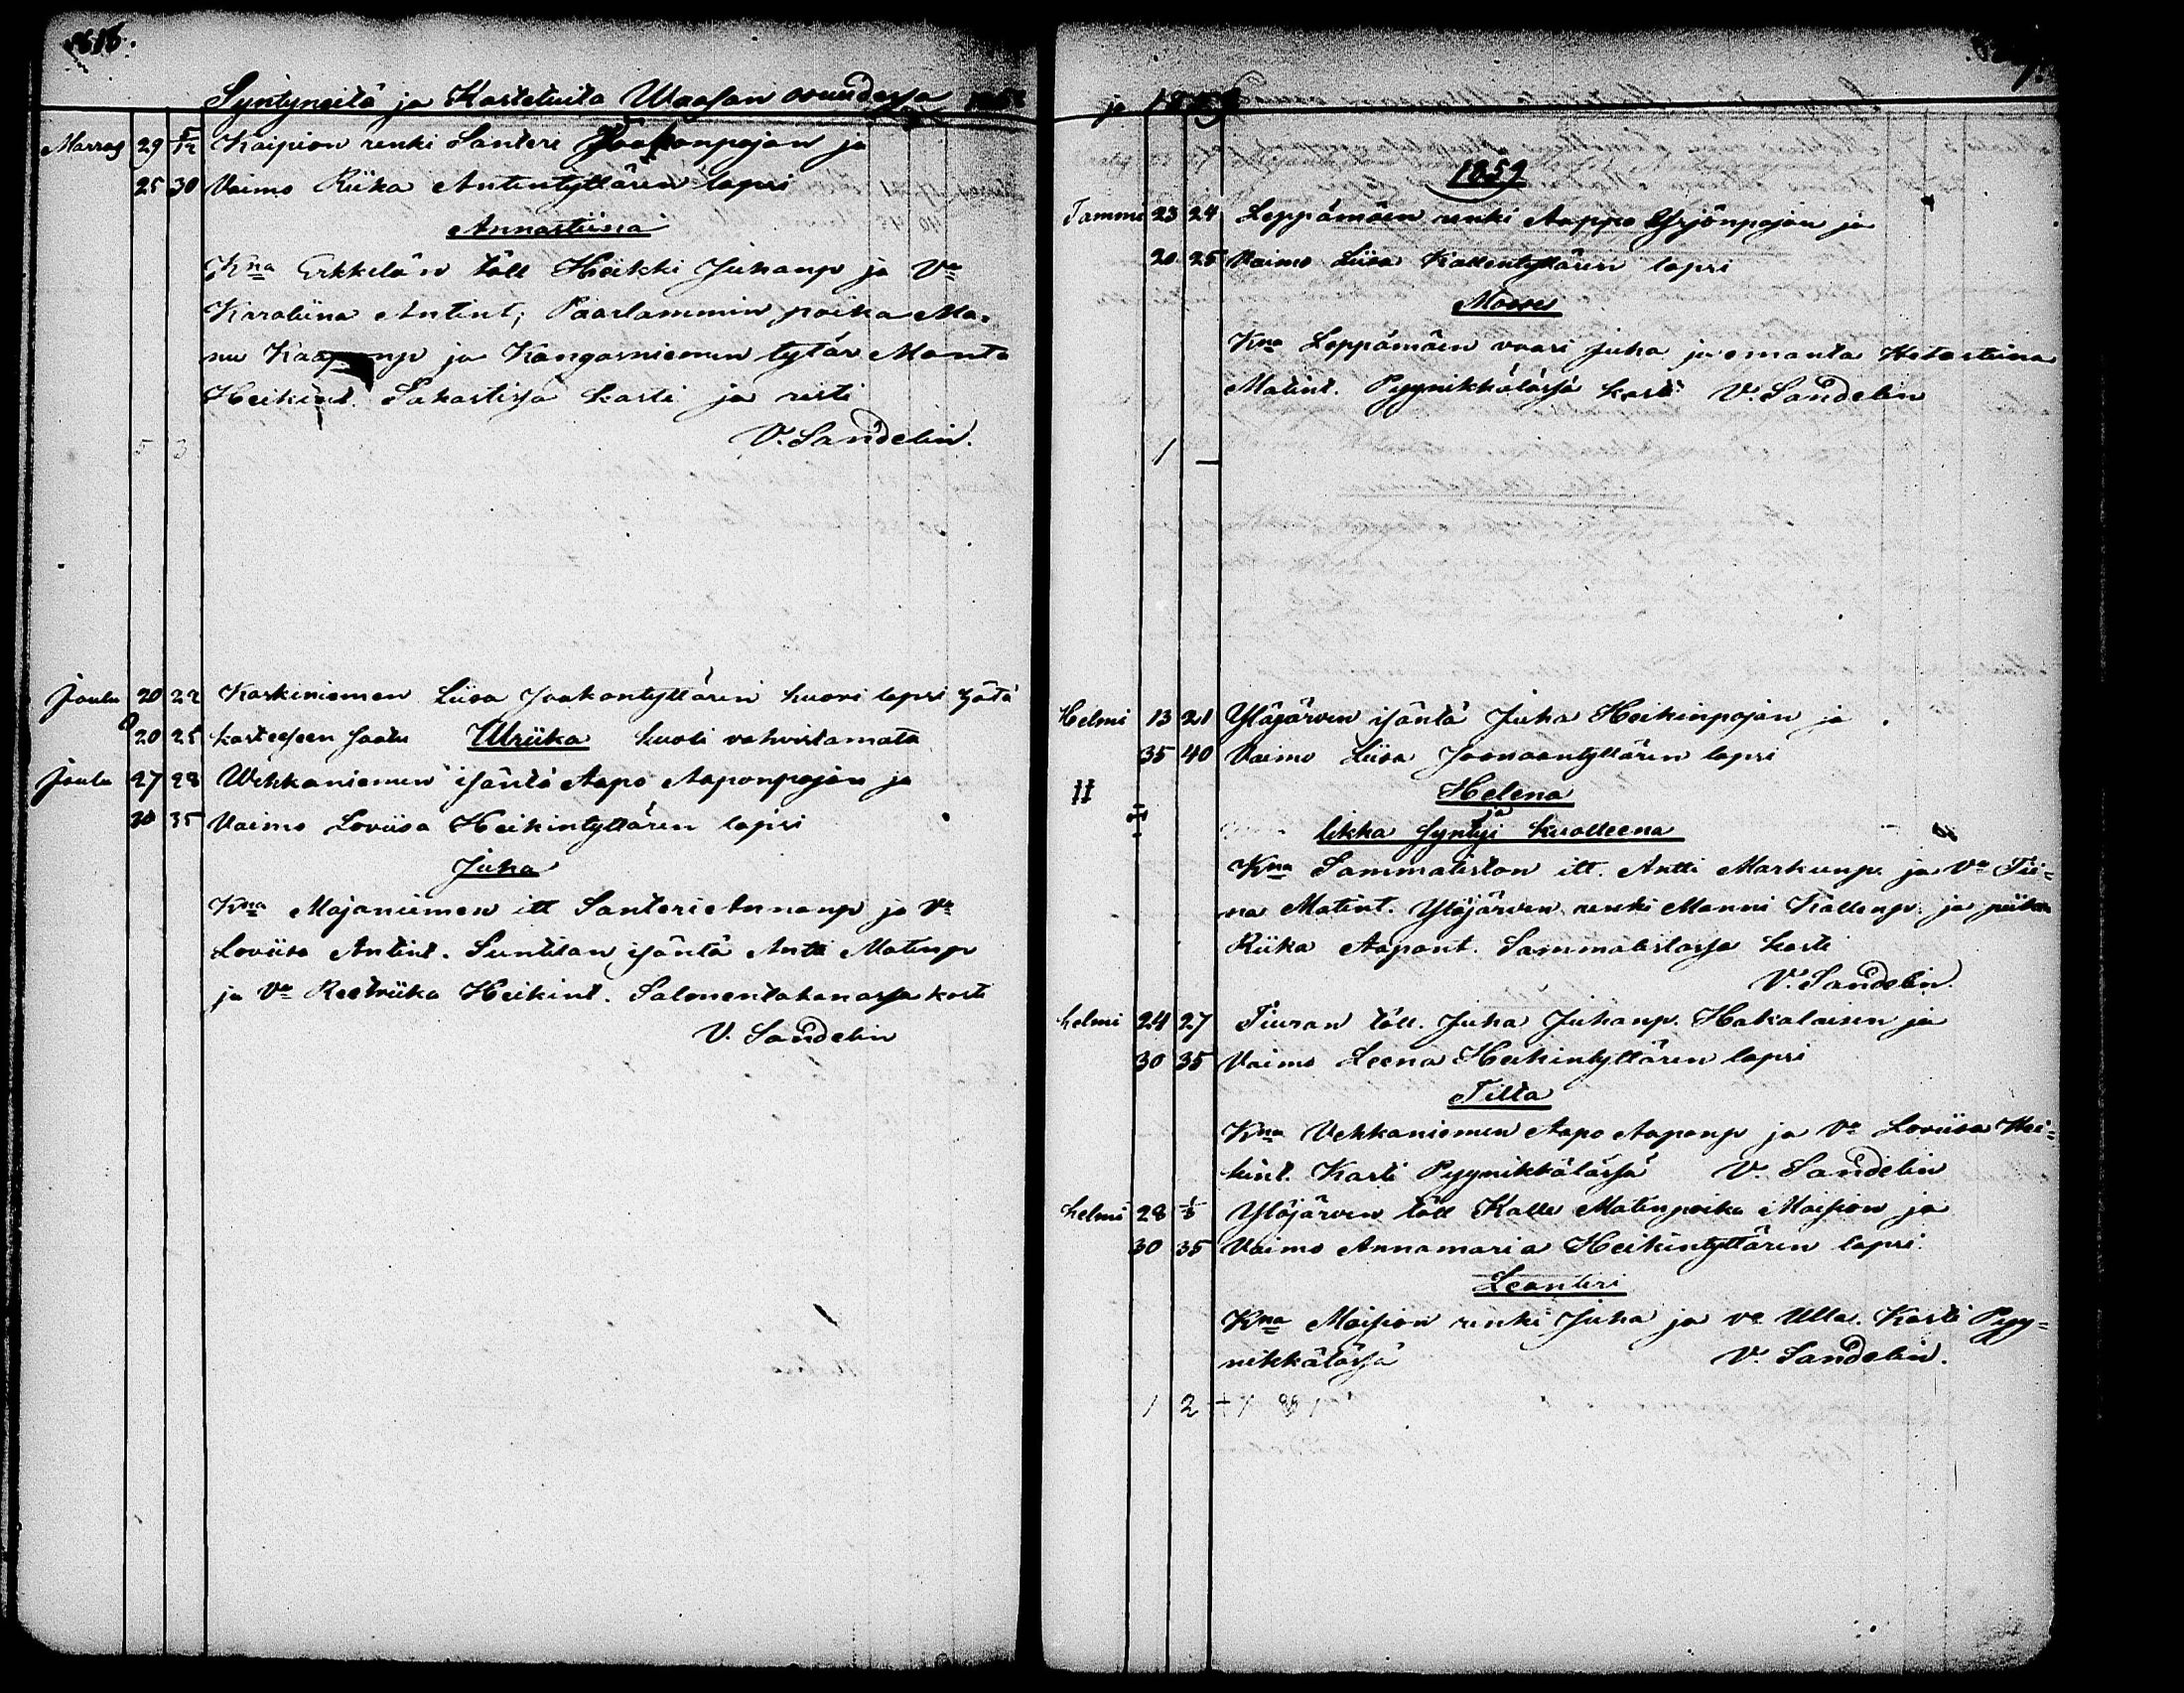 Syntyneitä ja Kasteluita Waasan vuudessa 1858
Marras 29 5/12 Kaipion renki Santeri Jaakonpojan ja
25 30 Vaimo Riika Antintyttären lapsi
Annastiina
Kna Erkkelän töll Heikki Juhanp ja Va
Karoliina Antint; Paarlammin poika Ma-
nu Kaaponp ja Kangasniemen tytär Manta
Heikint. Sakastissa kasti ja risti
V. Sandelin.
5 3
Joulu 20 22 Koskiniemen Liisa Jaakontyttären huori lapsi hätä
20 25 kasteeseen saatu Ulriika kuoli vahvistamata
Joulu 27 28 Wehkaniemen isäntä Aapo Aaponpojan ja
30 35 Vaimo Loviisa Heikintyttären lapsi
Juha
Kna Majaniemen itt Santeri Annanp ja Va
Loviisa Antint. Suntilan isäntä Antti Matinp
ja Va Reetriika Heikint. Salmentakanassa kasti
V. Sandelin
ja 1859
1859
Tammi 23 24 Leppämäen renki Aappo Yrjönpojan ja
20 25 Vaimo Liisa Kallentyttären lapsi
Mooses
Kna Leppämäen vaari Juha ja emanta Hetastiina
Matint. Pyynikkälässä kasti V. Sandelin
1 —
Helmi 13 21 Yläjärven isäntä Juha Heikinpojan ja
35 40 Vaimo Liisa Joonaantyttären lapsi
II Helena
ja
likka syntyi kuolleena
Kna Sammaliston itt. Antti Markunp. ja Va Tii-
na Matint. Yläjärven renki Manni Kallenp. ja piika
Riika Aapont. Sammalistossa kasti
V. Sandelin.
helmi 24 27 Tiuran töll. Juha Juhanp. Hakalaisen ja
30 35 Vaimo Leena Heikintyttären lapsi
Tilta
Kna Vehkaniemen Aapo Aaponp ja Va Loviisa Hei-
kint. Kasti Pyynikkälässä V. Sandelin
helmi 28 1/3 Yläjärven töll Kalle Matinpoika Moision ja
30 35 Vaimo Annamaria Heikintyttären lapsi.
Leanteri
Kna Moision renki Juha ja va Ulla. Kasti Pyy-
nikkälässä V. Sandelin.
1 2